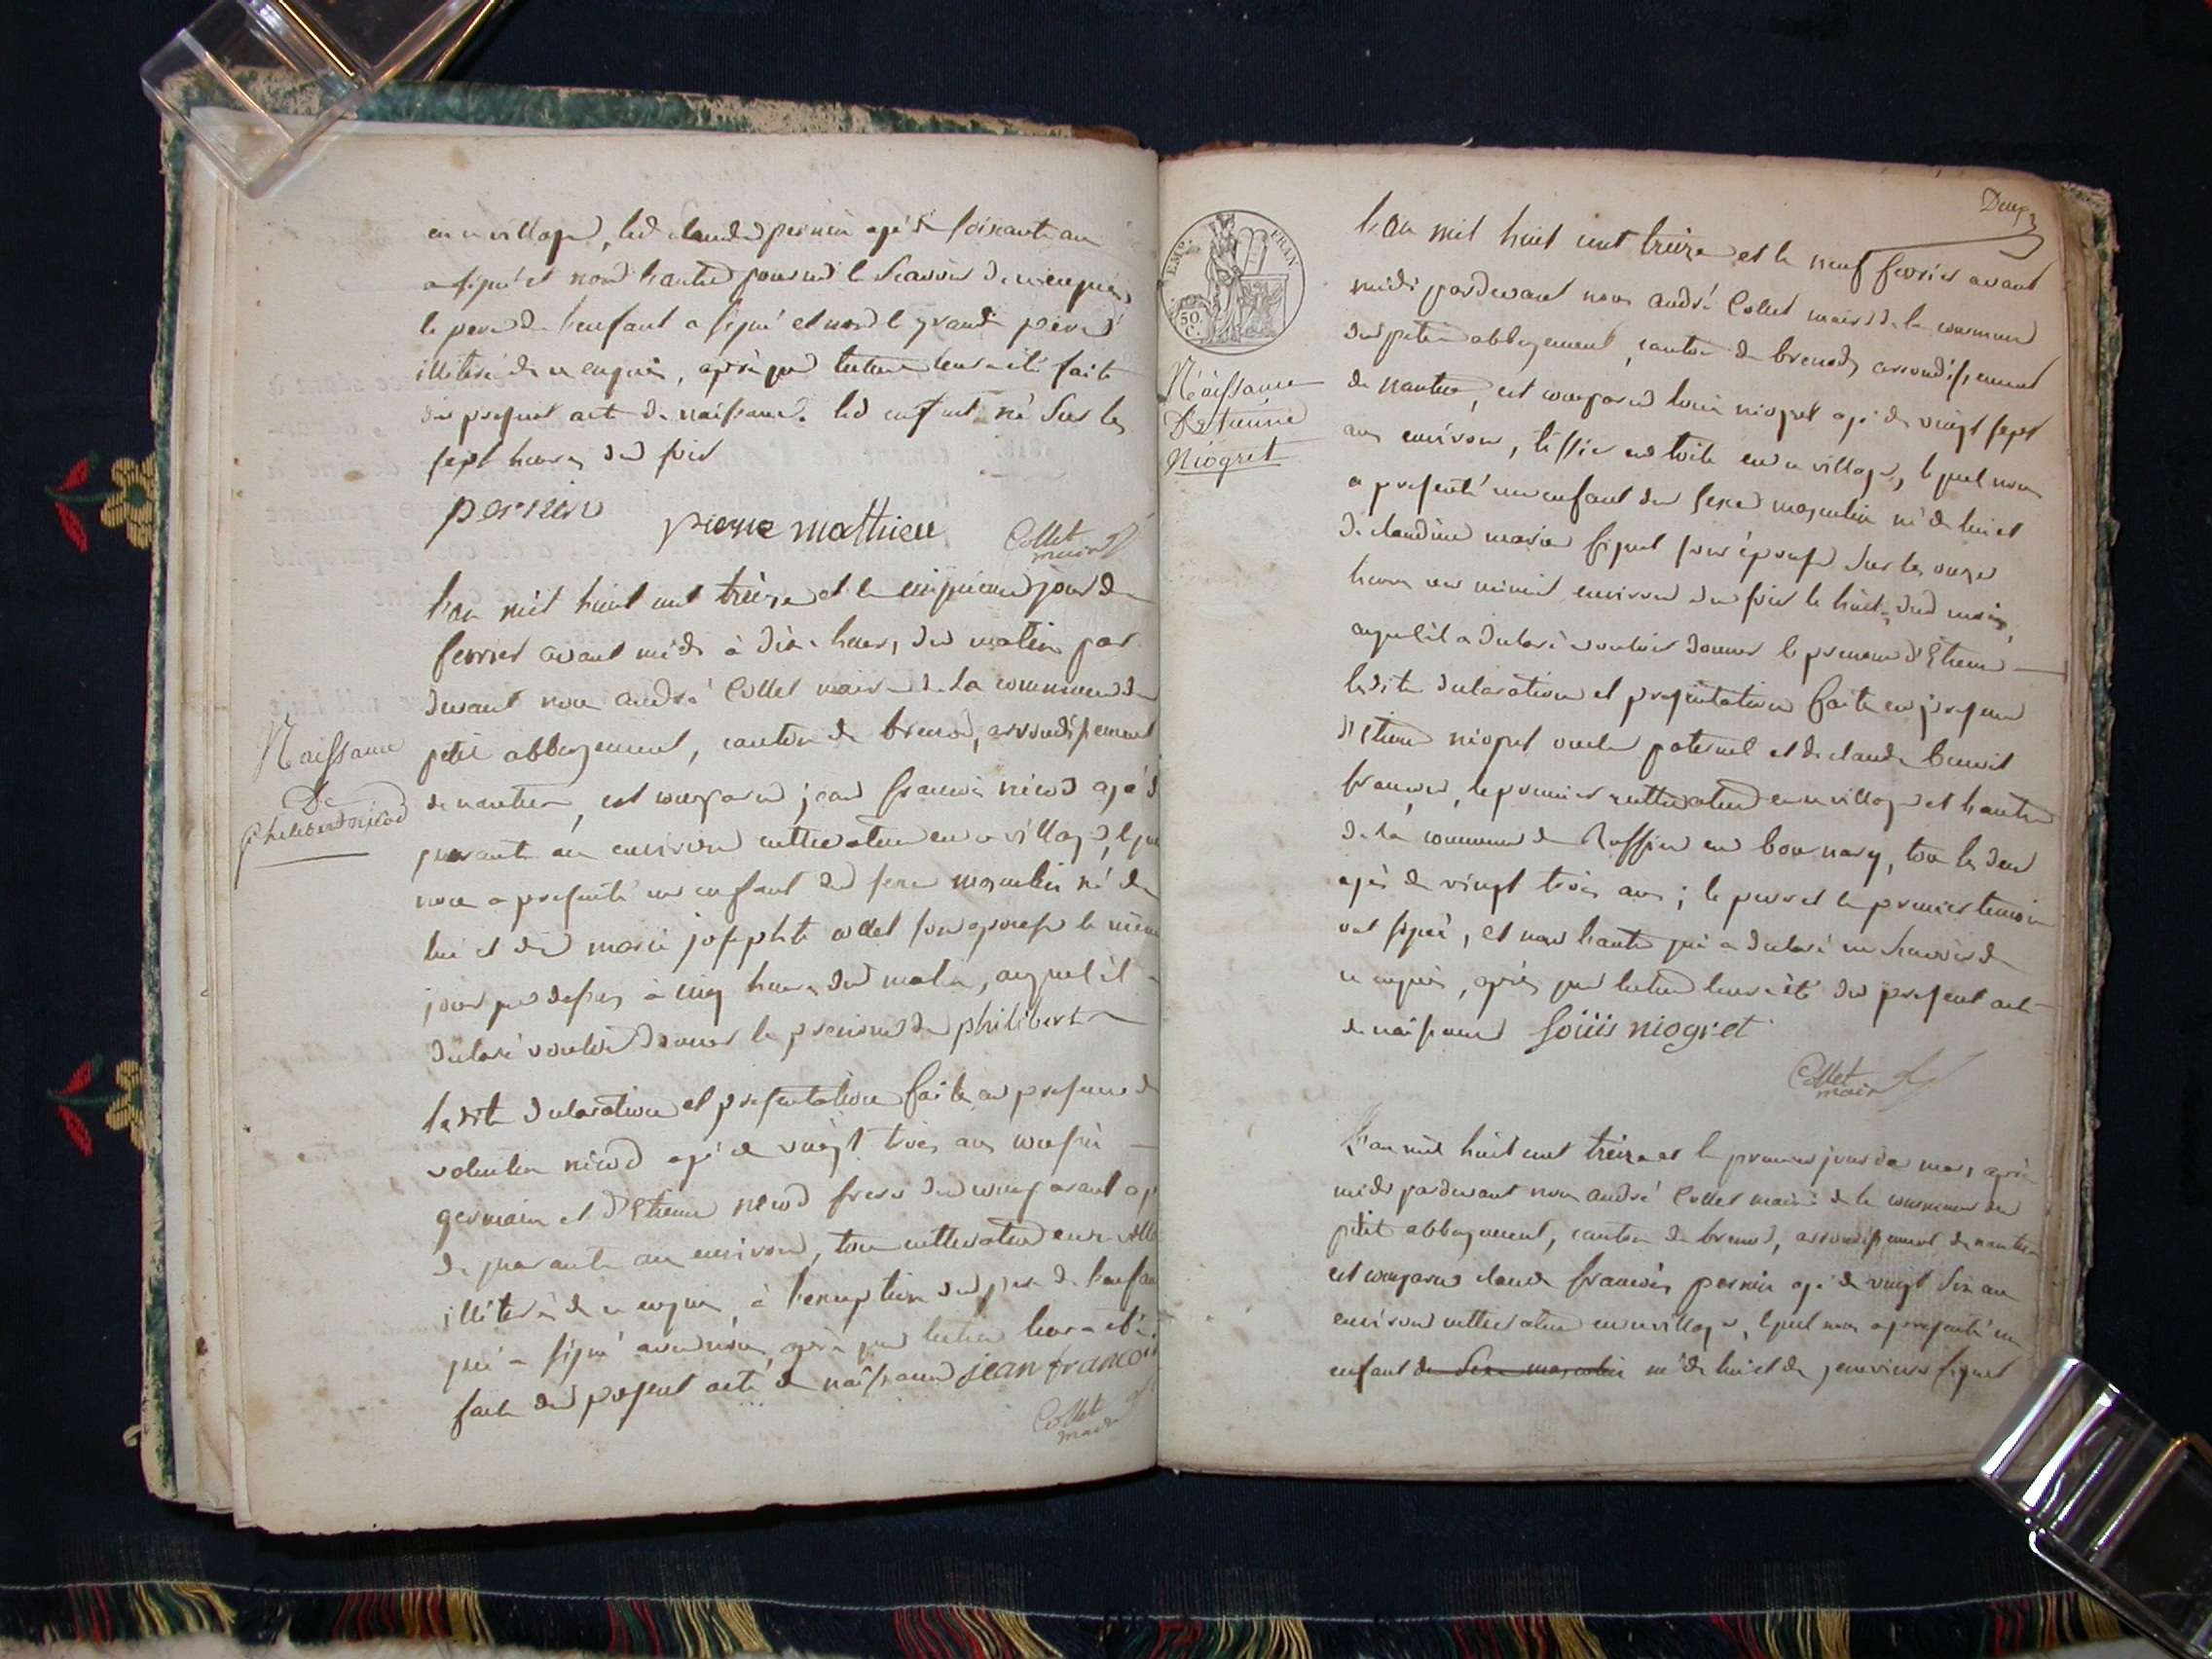 en ce village, led claude pernin agé de soixante ans
a signé et non l'autre pour ne le scavoir de ce enquis
le pere de l'enfant a signé et non le grand pere
illiteré de ce enquis, après que lecture leur a été faite
du present acte de naissance. led enfant né sur les
sept heures du soir
pernin pierre mathieu Collet
maire
l'an mil huit cent treize et le cinquieme jour de
fevrier avant midi à dix heures du matin par
devant nous andré Collet maire de la commune du
petit abbergement, canton de brenod, arrondissement
de nantua, est comparu jean francois nicod agé d
quarante ans environ cultivateur en ce village, leque
nous a presenté un enfant du sexe masculin né de
lui et de marie josephte collet son epouse le même
jour que dessus à cinq heures du matin, auquel il a
declaré vouloir donner le prenom de philibert
ladite declaration et presentation faite en presence de
valentin nicod agé de vingt trois ans cousin
germain et d'Etienne nicod frere du comparant agé
de quarante ans environ, tous cultivateurs en ce village
illiterés de ce enquis, à l'exception du pere de l'enfant
qui a signé avec nous, après que lecture leur a été
faite du present acte de naissance jean francois
Collet
maire
Naissance
De
philibert nicod
EMP. FRAN
50
C.
Deux
Naissance
D'etienne
Niogret
L'an mil huit cent treize et le neuf fevrier avant
midi pardevant nous andré Collet maire de la commune
du petit abbergement, canton de brenod, arrondissement
de nantua, est comparu louis niogret agé de vingt sept
ans environ, tissier en toile en ce village, lequel nous
a presenté un enfant du sexe masculin né de lui et
de claudine marie signet son épouse sur les onze
heures ou minuit environ du soir le huit dud mois,
auquel il a declaré vouloir donner le prenom d'Etienne
ladite declaration et presentation faite en presence
d'Etienne niogret oncle paternel et de claude benoit
francois, le premier cultivateur en ce village et l'autre
de la commune de Ruffieu en , tous les deux
agés de vingt trois ans; le pere et le premier temoin
ont signé, et non l'autre qui a declaré ne scavoir de
ce enquis, après que lecture leur a été du present acte
de naissance Loüis niogret
Collet
maire
L'an mil huit cent treize et le premier jour de mars après
midi pardevant nous andré Collet maire de la commune du
petit abbergement, canton de brenod, arrondissement de nantua
est comparu claude francois pernin agé de vingt six ans
environ cultivateur en ce village, lequel nous a presenté un
enfant du sexe masculin né de lui et de genevieve signet